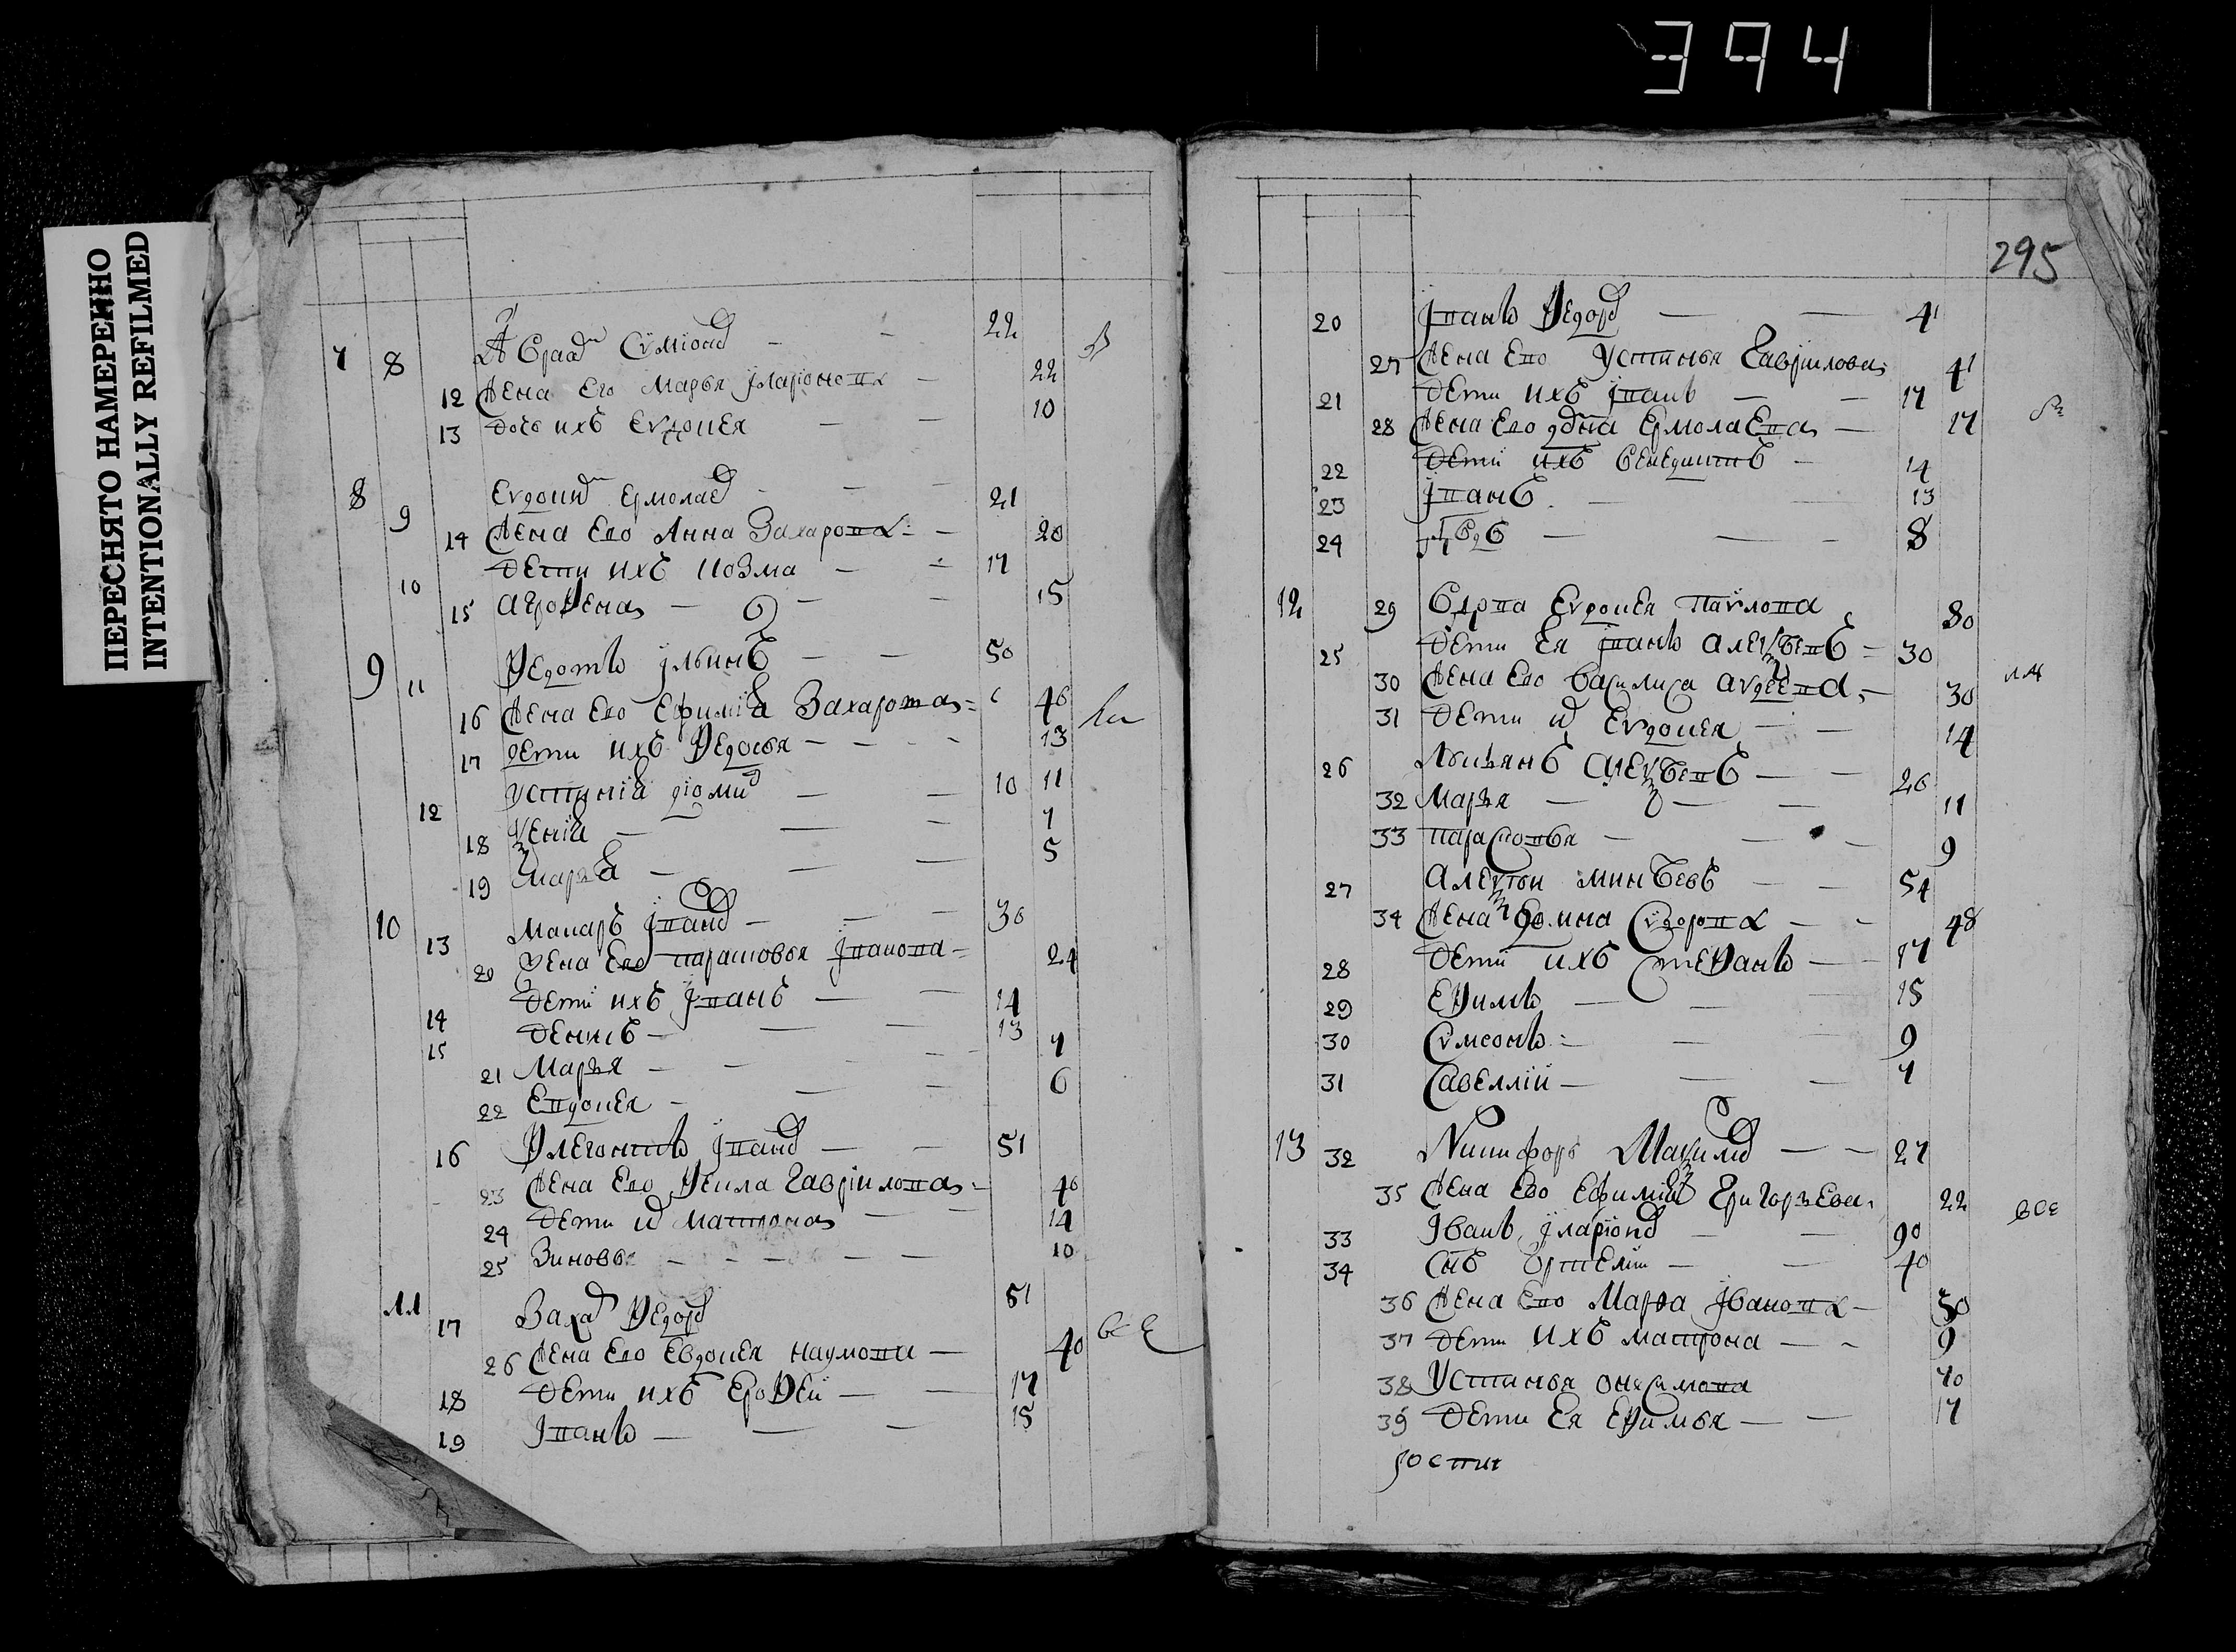 394
ПЕРЕСНЯТО НАМЕРЕННО
INTENTIONALLY REFILMED
7 8 Симіонов 22
12 жена его Марья Иларионова 22
13 дочь ихъ Евдокея 10
8 9 Евдоким Ермолаев 21
14 жена ево Анна Захарова 20
10 дети ихъ Козма 17
15 Агрофена 15
9 11 Федотъ Ильинъ 50
16 жена ево Ефимиа Захарова 46
17 дети ихъ Федосья 13
12 Устиниа 10 11
18 Ксениа 7
19 Марья 5
10 13 Макаръ Іванов 36
20 жена ево Парасковья Іванова 24
14 дети ихъ Іванъ 14
15 Денисъ 13
21 Марья 7
22 Евдокея 6
16 Флегонтъ Іванов 51
23 жена ево Фекла Гавриилова 46
24 дети их Матрона 14
25 Зиновья 10
11 17 Захар Федоров 51
26 жена ево Евдокея Наумова 40 все
18 дети ихъ Ерофей 17
19 Іванъ 15
295
20 Іванъ Федоров 41
27 жена ево Устинья Гавриилова 41
21 дети ихъ Іванъ 17
28 жена ево Ермолаева 17
22 дети ихъ Бенедиктъ 14
23 Іванъ 13
24 8
12 29 вдова Евдокея Павлова 80
25 дети ея Іванъ Алексѣевъ 30
30 жена ево Василиса Авдеева 30
31 дети их Евдокея 14
26 Лукьянъ Алексѣевъ 26
32 Марья 11
33 Парасковья 9
27 Алексѣи Минѣевъ 54
34 жена Сидорова 48
28 дети ихъ Стефанъ 17
29 Ефимъ 15
30 Симеонъ 9
31 Савеллій 7
13 32 Никифоръ Максимов 27
35 жена ево Ефимиа Григорьева 22 все
33 Іванъ Іларіонов 90
34 сынъ 40
36 жена ево Марѳа Іванова 30
37 дети ихъ Матрона 9
38 Устинья Онисимова 40
39 дети ея Ефимья 17